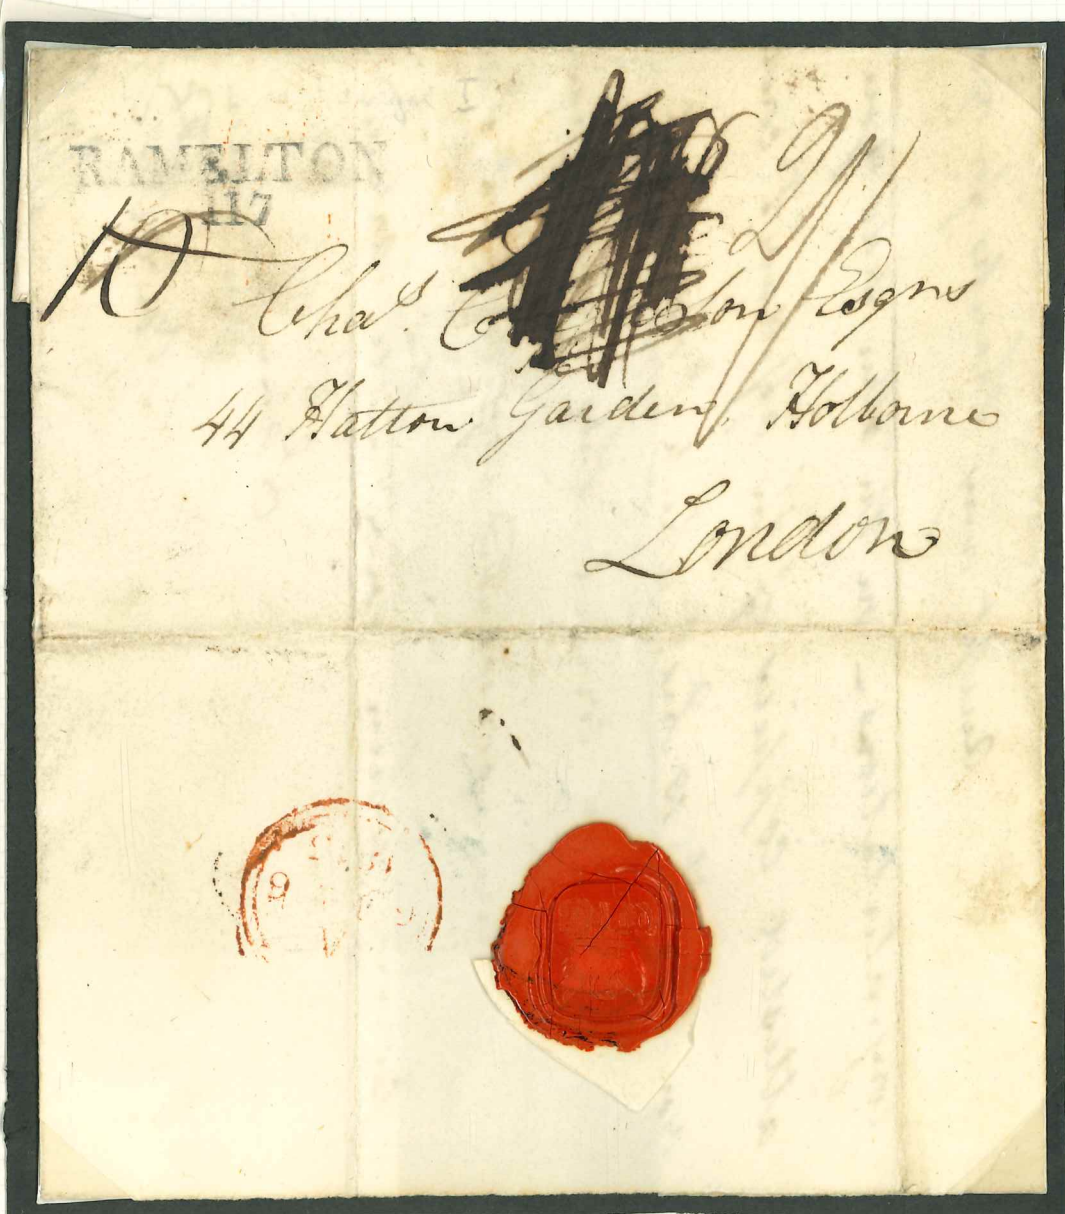 RAMELTON
117
10
2/
Chas. Esqrs
44 Hatton Garden, Holborne
London